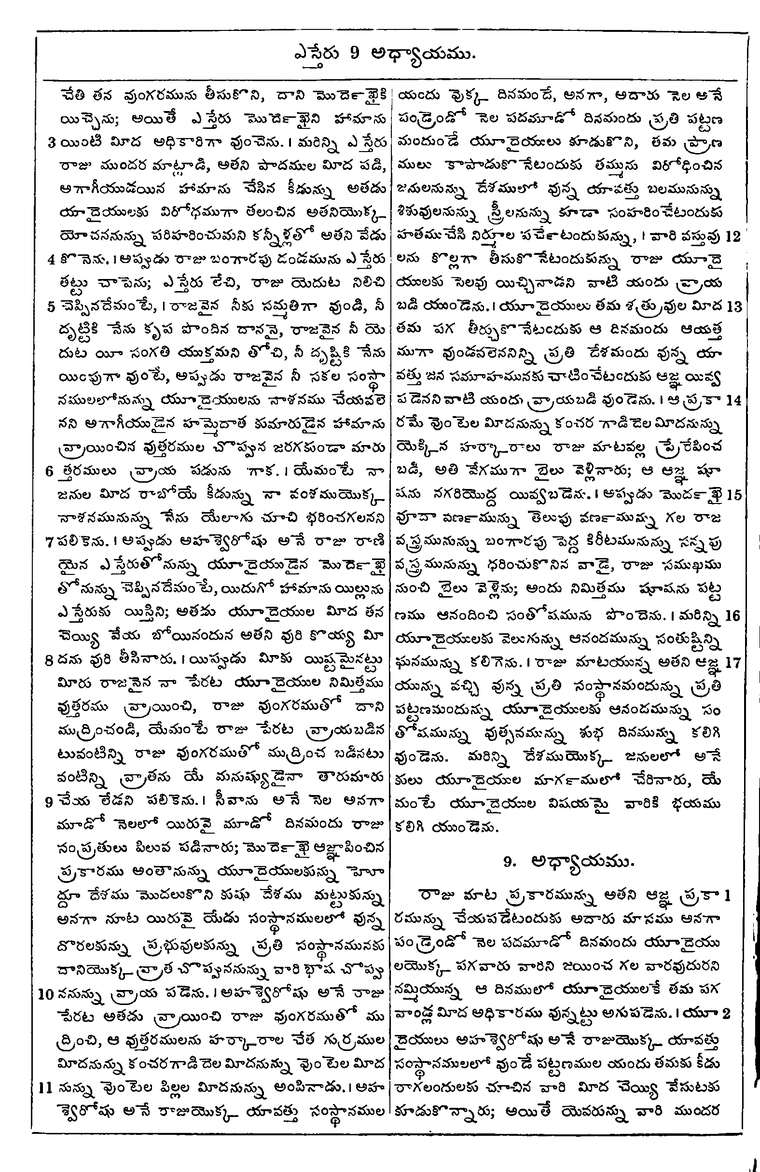 ఎస్తేరు 9 అధ్యాయము.
చేతి తన వుంగరమును తీసుకొని, దాని మొర్దెఖైకి
యిచ్చెను; అయితే ఎస్తేరు మొర్దెఖైని హామాను
3 యింటి మీద అధికారిగా వుంచెను. । మరిన్ని ఎస్తేరు
రాజు ముందర మాట్లాడి, అతని పాదముల మీద పడి,
అగాగీయుడయిన హామాను చేసిన కీడున్ను అతడు
యూదైయులకు విరోధముగా తలంచిన అతనియొక్క
యోచననున్ను పరిహరించుమని కన్నీళ్లతో అతని వేడు
4 కొనెను. । అప్పుడు రాజు బంగారపు దండమును ఎస్తేరు
తట్టు చాపెను; ఎస్తేరు లేచి, రాజు యెదుట నిలిచి
5 చెప్పినదేమంటే, । రాజవైన నీకు సమ్మతిగా వుండి, నీ
దృష్టికి నేను కృప పొందిన దాననై, రాజవైన నీ యె
దుట యీ సంగతి యుక్తమని తోచి, నీ దృష్టికి నేను
యింపుగా వుంటే, అప్పుడు రాజవైన నీ సకల సంస్థా
నములలోనున్ను యూదైయులను నాశనము చేయవలె
నని అగాగీయుడైన హమ్మెదాత కుమారుడైన హామాను
వ్రాయించిన వుత్తరముల చొప్పున జరగకుండా మారు
6 త్తరములు వ్రాయ పడును గాక. । యేమంటే నా
జనుల మీద రాబోయే కీడున్ను నా వంశముయొక్క
నాశనమునున్ను నేను యేలాగు చూచి భరించగలనని
7 పలికెను. । అప్పుడు అహశ్వెరోషు అనే రాజు రాణి
యైన ఎస్తేరుతోనున్ను యూదైయుడైన మొర్దెఖై
తోనున్ను చెప్పినదేమంటే, యిదుగో హామాను యిల్లును
ఎస్తేరుకు యిస్తిని; అతడు యూదైయుల మీద తన
చెయ్యి వేయ బోయినందున అతని వురి కొయ్య మీ
8 దను వురి తీసినారు. । యిప్పుడు మీకు యిష్టమైనట్టు
మీరు రాజనైన నా పేరట యూదైయుల నిమిత్తము
వుత్తరము వ్రాయించి, రాజు వుంగరముతో దాని
ముద్రించండి, యేమంటే రాజు పేరట వ్రాయబడిన
టువంటిన్ని రాజు వుంగరముతో ముద్రించ బడినటు
వంటిన్ని వ్రాతను యే మనుష్యుడైనా తారుమారు
9 చేయ లేడని పలికెను. । సీవాను అనే నెల అనగా
మూడో నెలలో యిరువై మూడో దినమందు రాజు
సంప్రతులు పిలువ పడినారు; మొర్దెఖై ఆజ్ఞాపించిన
ప్రకారము అంతానున్ను యూదైయులకున్ను హొ
ద్దూ దేశము మొదలుకొని కుషు దేశము మట్టుకున్ను
అనగా నూట యిరువై యేడు సంస్థానములలో వున్న
దొరలకున్ను ప్రభువులకున్ను ప్రతి సంస్థానమునకు
దానియొక్క వ్రాత చొప్పుననున్ను వారి భాష చొప్పు
10 ననున్ను వ్రాయ పడెను. । అహశ్వెరోషు అనే రాజు
పేరట అతడు వ్రాయించి రాజు వుంగరముతో ము
ద్రించి, ఆ వుత్తరములను హర్కారాల చేత గుర్రముల
మీదనున్ను కంచరగాడిదెల మీదనున్ను వొంటెల మీద
11 నున్ను వొంటెల పిల్లల మీదనున్ను అంపినాడు. । అహ
శ్వెరోషు అనే రాజుయొక్క యావత్తు సంస్థానముల
యందు వొక్క దినమందే, అనగా, అదారు నెల అనే
పండ్రెండో నెల పదమూడో దినమందు ప్రతి పట్టణ
మందుండే యూదైయులు కూడుకొని, తమ ప్రాణ
ములు కాపాడుకొనేటందుకు తమ్మును విరోధించిన
జనులనున్ను దేశములో వున్న యావత్తు బలమునున్ను
శిశువులనున్ను స్త్రీలనున్ను కూడా సంహరించేటందుకు
హతముచేసి నిర్మూల పర్చేటందుకున్ను, । వారి వస్తువు 12
లను కొల్లగా తీసుకొనేటందుకున్ను రాజు యూదై
యులకు సెలవు యిచ్చినాడని వాటి యందు వ్రాయ
బడి యుండెను. । యూదైయులు తమ శత్రువుల మీద 13
తమ పగ తీర్చుకొనేటందుకు ఆ దినమందు ఆయత్త
ముగా వుండవలెననిన్ని ప్రతి దేశమందు వున్న యా
వత్తు జన సమూహమునకు చాటించేటందుకు ఆజ్ఞ యివ్వ
పడెనని వాటి యందు వ్రాయబడి వుండెను. । ఆ ప్రకా 14
రమే వొంటెల మీదనున్ను కంచర గాడిదెల మీదనున్ను
యెక్కిన హర్కారాలు రాజు మాటవల్ల ప్రేరేపించ
బడి, అతి వేగముగా బైలు వెళ్లినారు; ఆ ఆజ్ఞ షూ
షను నగరియొద్ద యివ్వబడెను. । అప్పుడు మొర్దెఖై 15
వూదా వర్ణమున్ను తెలుపు వర్ణమున్ను గల రాజ
వస్త్రమునున్ను బంగారపు పెద్ద కిరీటమునున్ను సన్నపు
వస్త్రమునున్ను ధరించుకొనిన వాడై, రాజు సముఖము
నుంచి బైలు వెళ్లెను; అందు నిమిత్తము షూషను పట్ట
ణము ఆనందించి సంతోషమును పొందెను. । మరిన్ని 16
యూదైయులకు వెలుగున్ను ఆనందమున్ను సంతుష్టిన్ని
ఘనమున్ను కలిగెను. । రాజు మాటయున్ను అతని ఆజ్ఞ 17
యున్ను వచ్చి వున్న ప్రతి సంస్థానమందున్ను ప్రతి
పట్టణమందున్ను యూదైయులకు ఆనందమున్ను సం
తోషమున్ను వుత్సవమున్ను శుభ దినమున్ను కలిగి
వుండెను. మరిన్ని దేశముయొక్క జనులలో అనే
కులు యూదైయుల మార్గములో చేరినారు, యే
మంటే యూదైయుల విషయమై వారికి భయము
కలిగి యుండెను.
9. అధ్యాయము.
రాజు మాట ప్రకారమున్ను అతని ఆజ్ఞ ప్రకా 1
రమున్ను చేయపడేటందుకు అదారు మాసము అనగా
పండ్రెండో నెల పదమూడో దినమందు యూదైయు
లయొక్క పగవారు వారిని జయించ గల వారవుదురని
నమ్మియున్న ఆ దినములో యూదైయులకే తమ పగ
వాండ్ల మీద అధికారము వున్నట్టు అగుపడెను. । యూ 2
దైయులు అహశ్వెరోషు అనే రాజుయొక్క యావత్తు
సంస్థానములలో వుండే పట్టణముల యందు తమకు కీడు
రాగలందులకు చూచిన వారి మీద చెయ్యి వేసుటకు
కూడుకొన్నారు; అయితే యెవరున్ను వారి ముందర